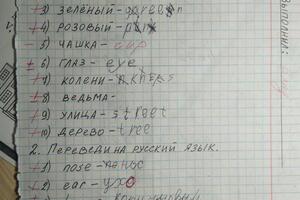 3) ЗЕЛЁНЫЙ-
4) РОЗОВЫЙ-
5) ЧАШКА-cup
6) ГЛАЗ-eye
7) КОЛЕНИ-
8) ВЕДЬМА-
9) УЛИЦА-street
10) ДЕРЕВО-tree
2. ПЕРЕВЕДИ НА РУССКИЙ ЯЗЫК.
1) nose-
2) ear-ухо
ВЫПОЛНИЛ: